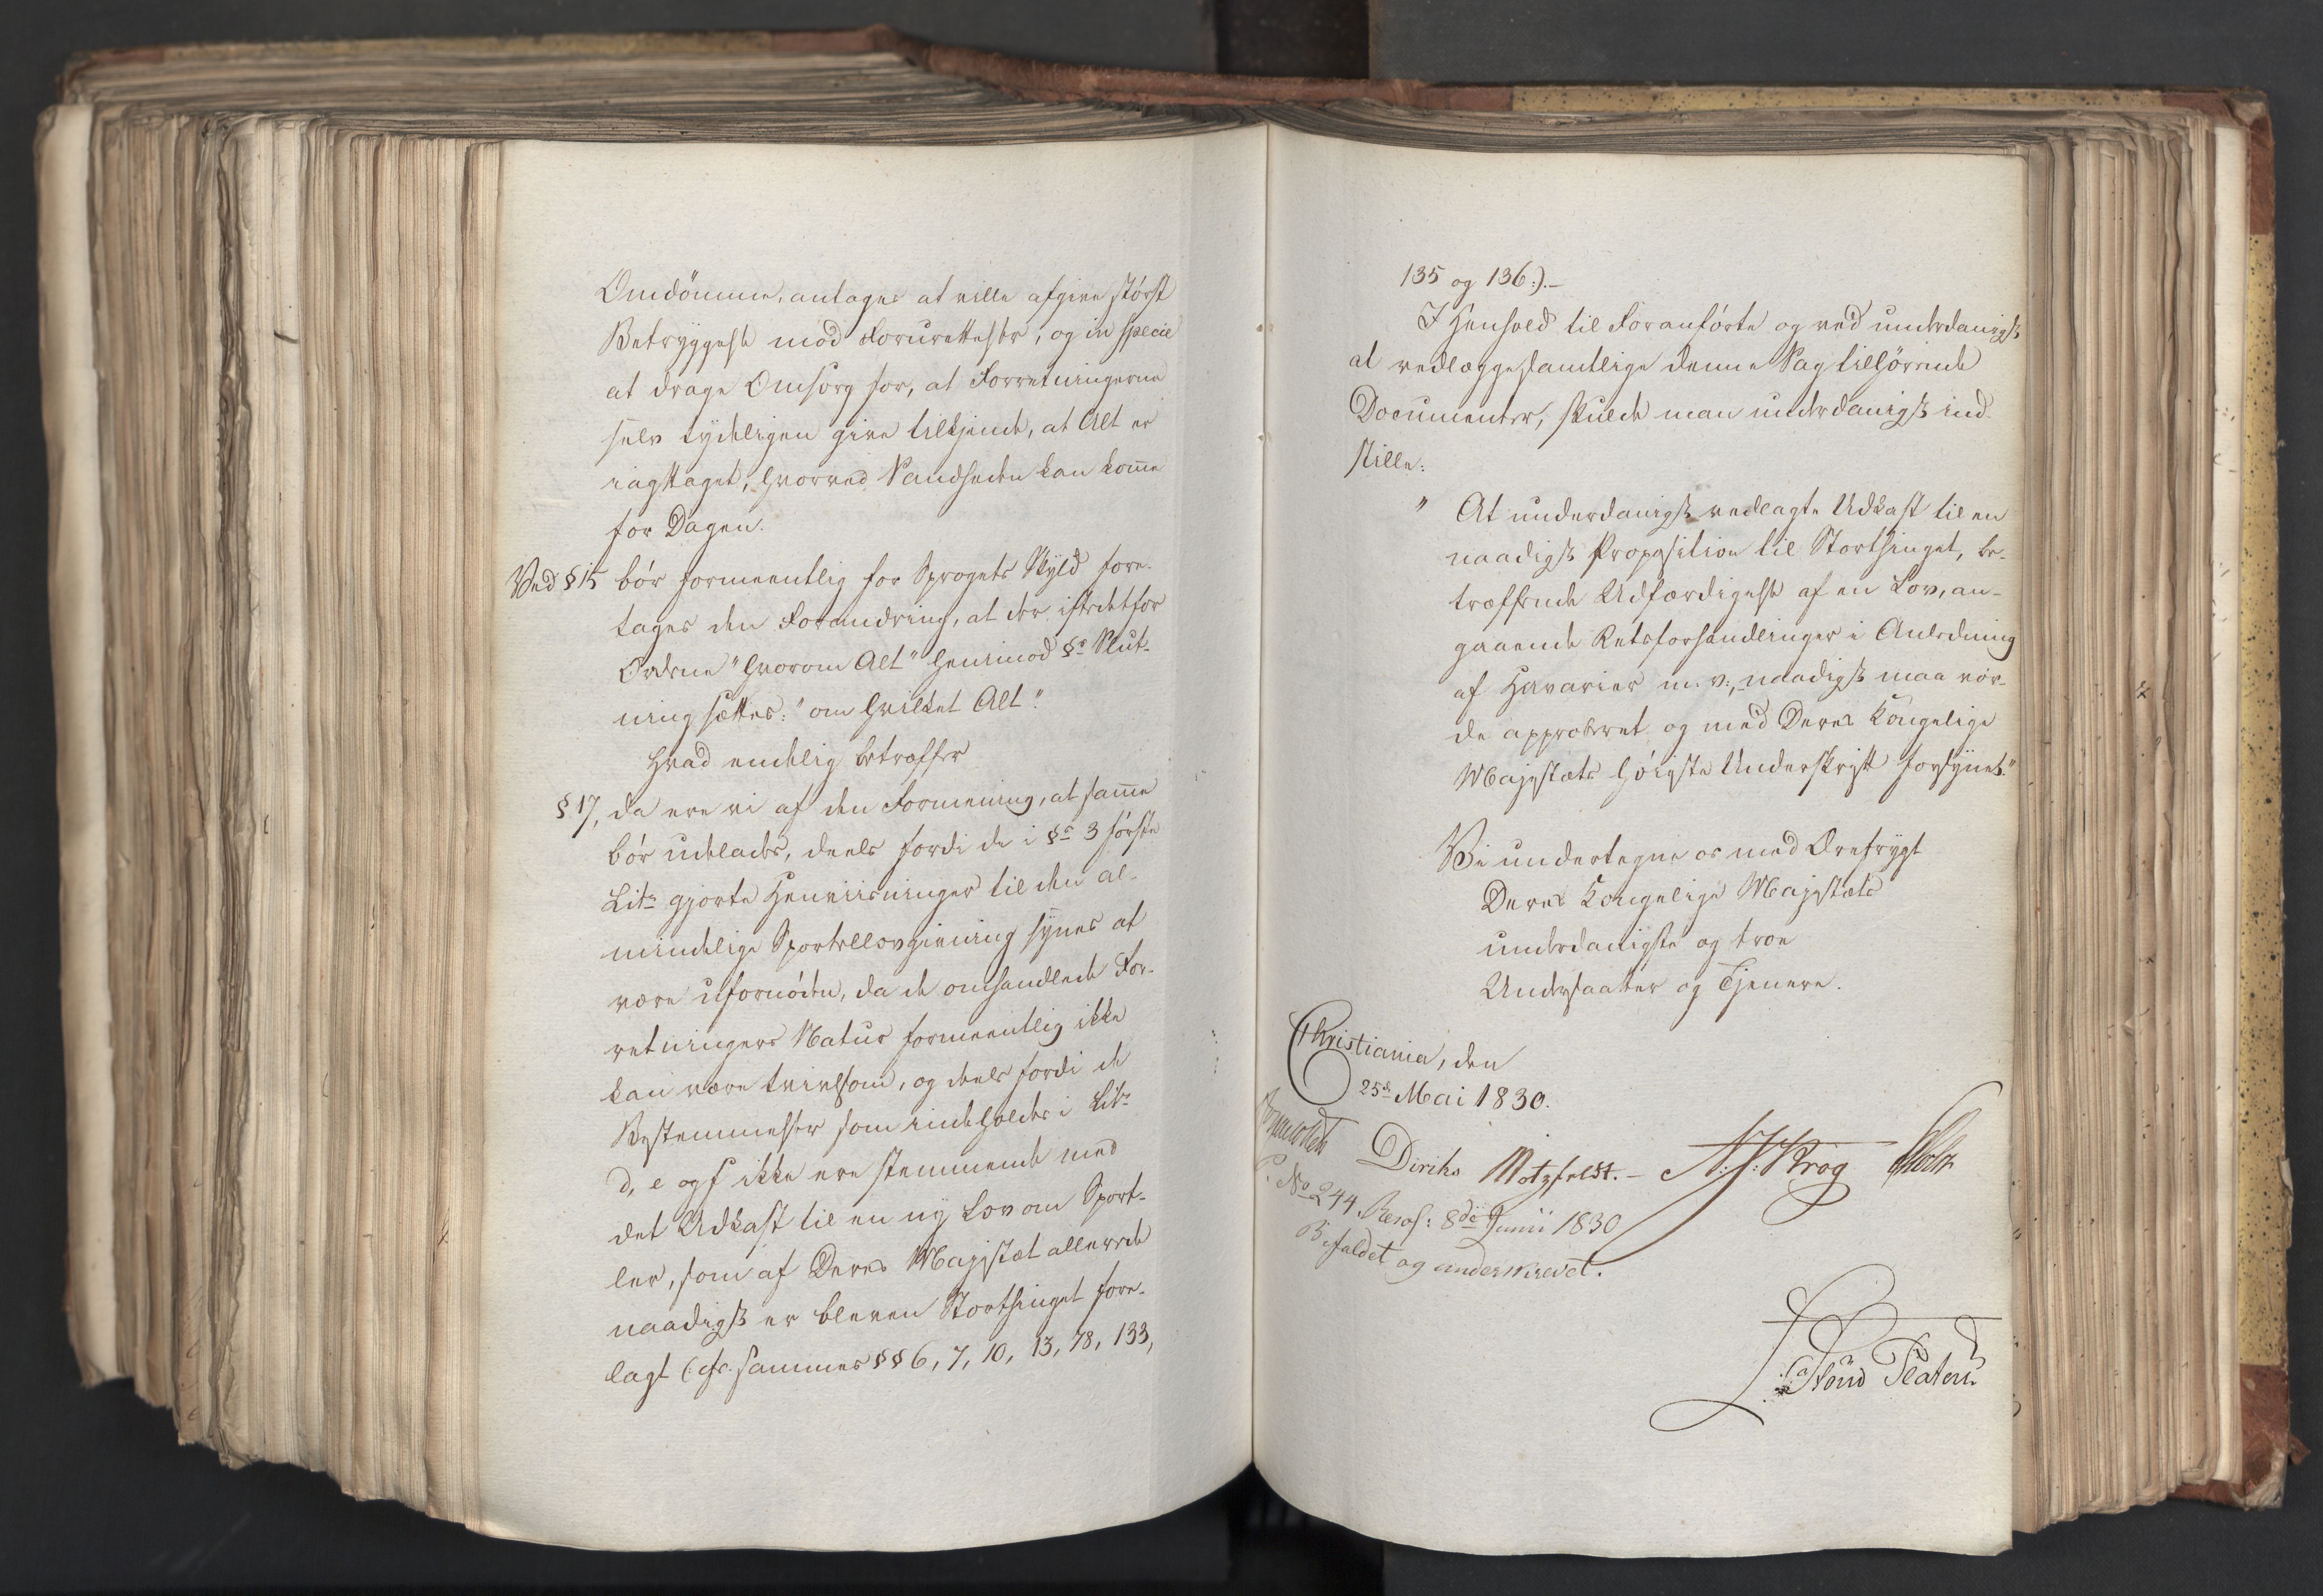 Omdömme, antages at ville afgive störst
Betryggelse mod Forurettelser, og in specie
at drage Omsorg for, at Forretningerne
selv tydeligen give tilkjende, at Alt er
iagttaget, hvorved Sandheden kan komme
for Dagen.
Ved § 15 bör formeentlig for Sprogets Skyld fore-
tages den Forandring, at der istedetfor
Ordene "hvorom Alt" henimod §s Slut-
ning sættes: "om hvilket Alt".
Hvad endelig betræffer
§ 17, da ere vi af den Formening, at samme
bör udelades, deels fordi de i §s 3 förste
Litr gjorte Henviisninger til den al-
mindelige Sportellovgivning synes at
være ufornöden, da de omhandlede For-
retningers Natur formeentlig ikke
kan være tvivlsom, og deels fordi de
Bestemmelser som indeholdes i Litr
d, e og f ikke ere stemmende med
det Udkast til en ny Lov om Sport-
ler, som af Deres Majestæt allerede
naadigst er bleven Storthinget fore-
lagt (: cfr. sammes §§ 6, 7, 10, 13, 78, 133,
135 og 136:).-
I Henhold til Foranförte og ved underdanigst
at vedlægge samtlige denne Sag tilhörende
Documenter, skulde man underdanigst ind-
stille:
" At underdanigst vedlagte Udkast til en
naadigst Proposition til Storthinget, be-
træffende Udfærdigelse af en Lov, an-
gaaende Retsforhandlinger i Anledning
af Havarier m. v:, naadigst maa vor-
de approberet og med Deres Kongelige
Majestæts höieste Underskrift forsynet."
Vi undertegne os med Ærefrygt
Deres Kongelige Majestæts
underdanigste og troe
Undersaatter og Tjenere.
Christiania, den
25de Mai 1830.
Diriks Motzfeldt. - N: J: Krog Holst
No 244. Resol: 8de Junii 1830
Bifaldet og underskrevet.
Platen